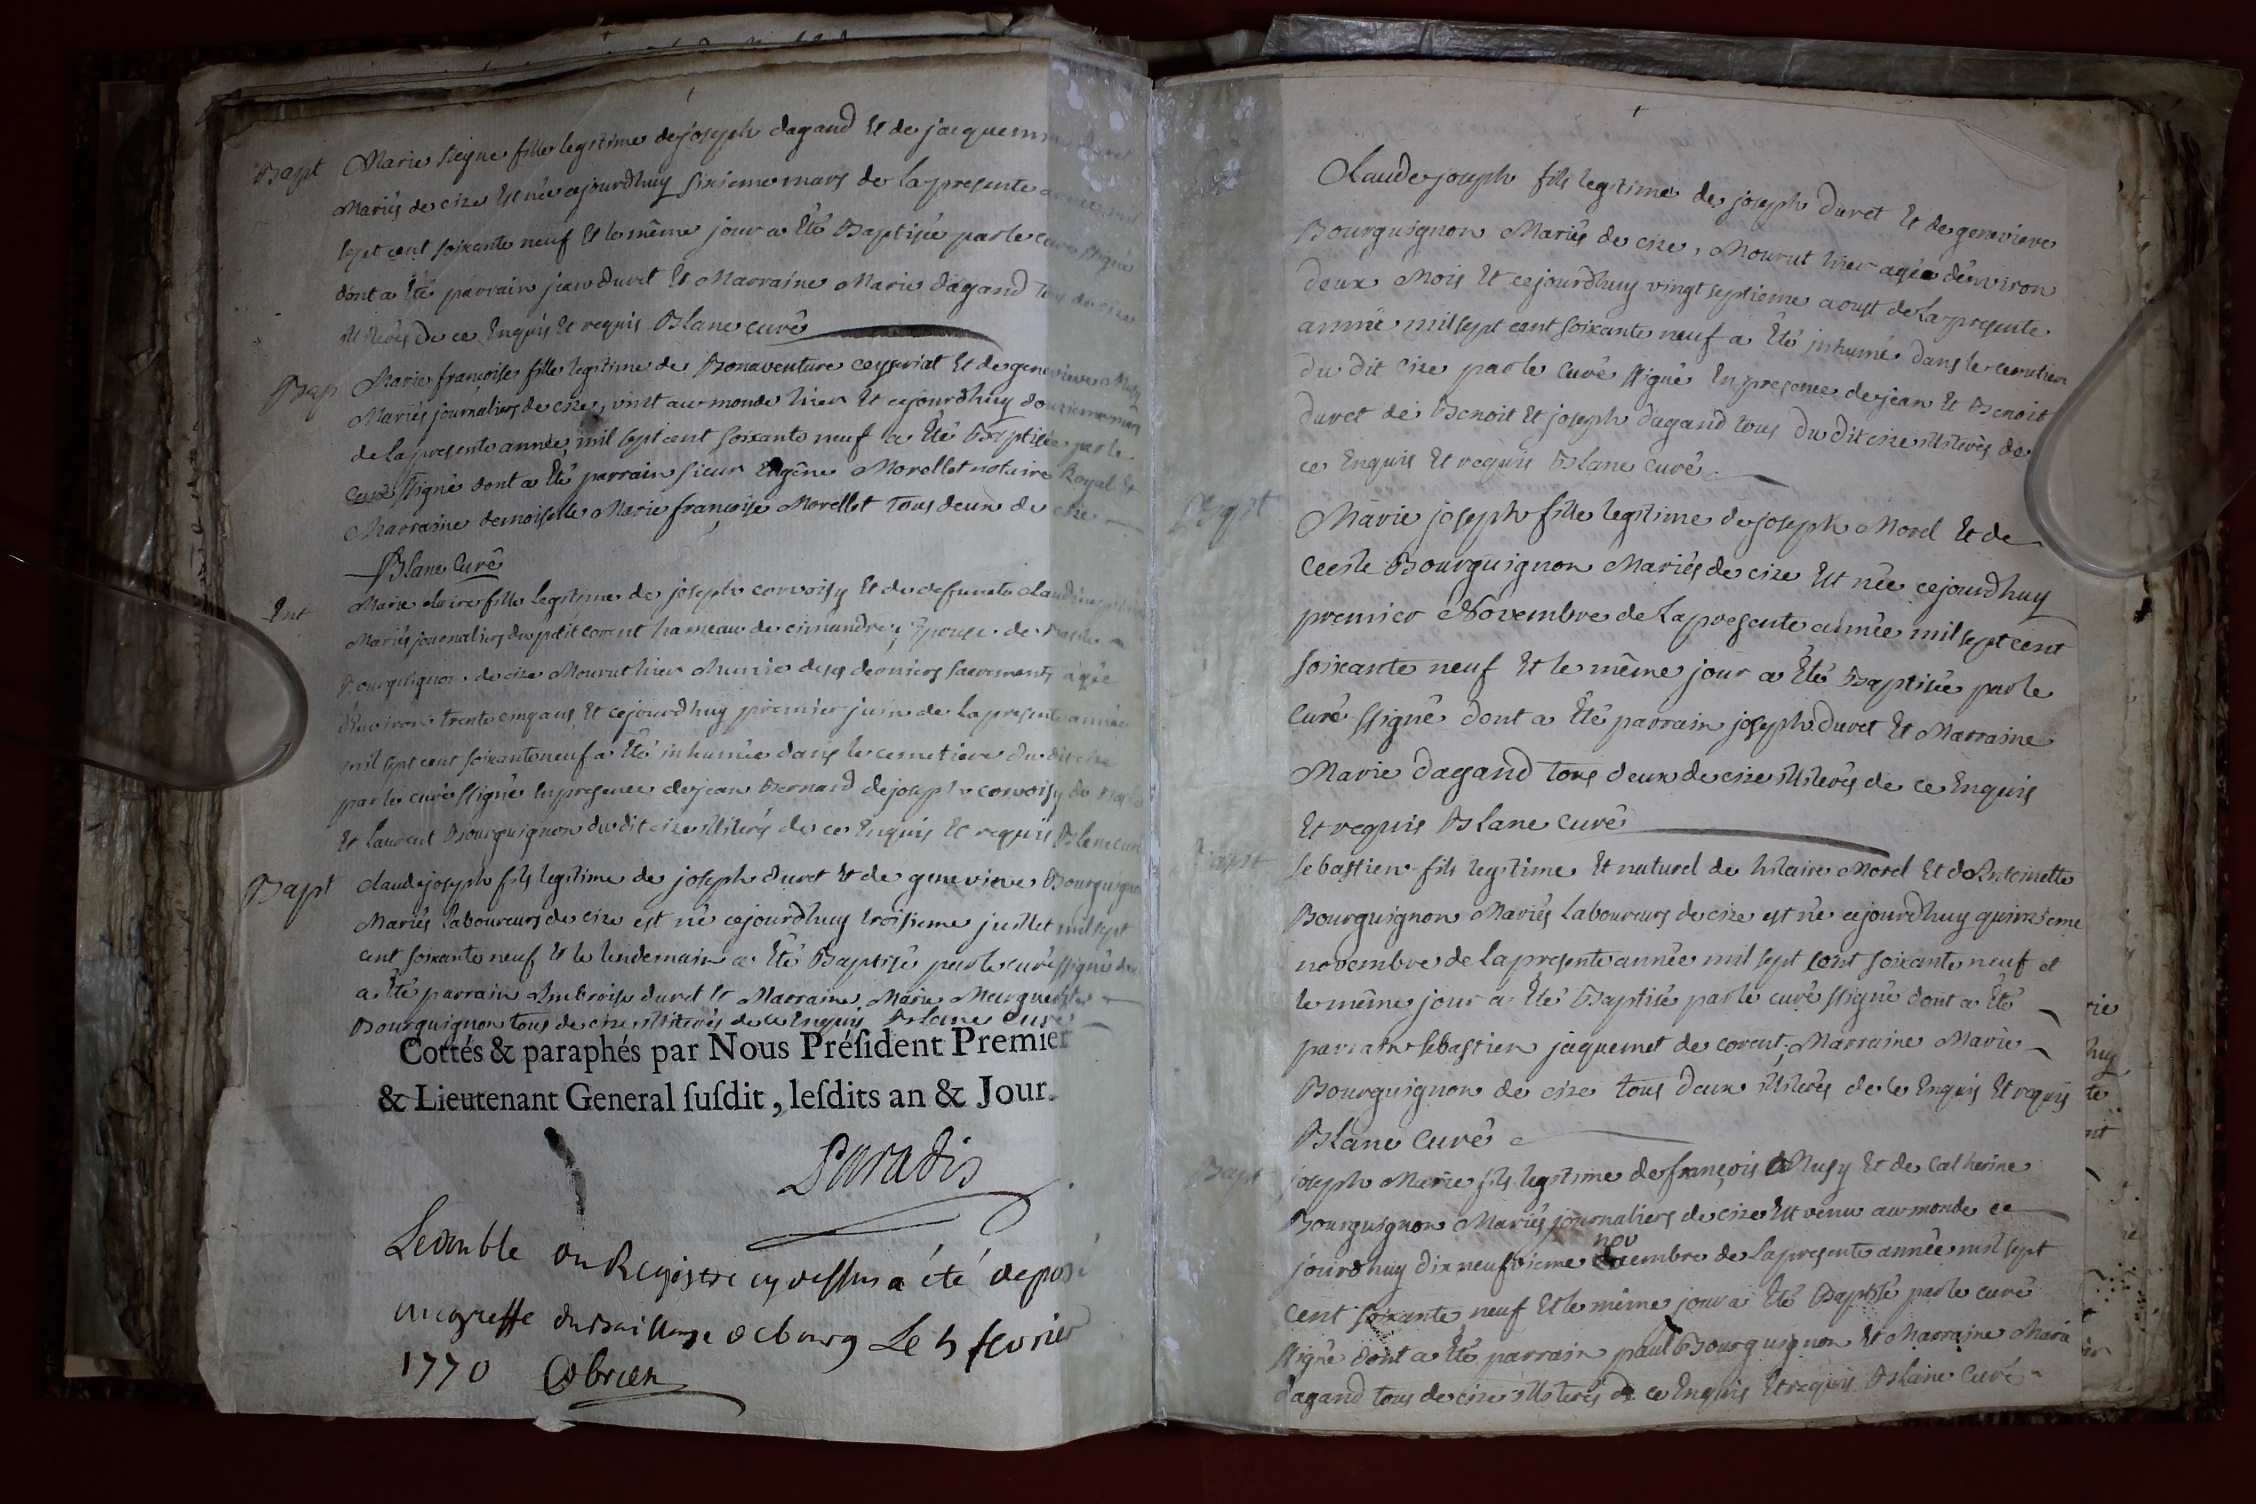 Bapt Marie Reyne fille legitime de joseph dagand Et de jacquemine duret
Mariés de cize Est née cejourdhuy sixieme mars de la presente année mil
sept cent soixante neuf Et le même jour a Eté Baptisée par le curé ssigné
dont a Eté parrain jean duret Et Marraine Marie dagand tous de cize
illiterés de ce Enquis Et requis Blanc curé
Bap Marie françoise fille legitime de Bonaventure ceyseriat Et de genevieve
Mariés journaliers de cize, vint au monde hier Et cejourdhuy douzieme
de la presente année, mil sept cent soixante neuf a Eté Baptisée par le
curé ssigné dont a Eté parrain sieur Eugêne Morellet notaire Royal Et
Marraine demoiselle Marie françoise Morellet tous deux de cize
Blanc Curé
Ent Marie claire fille legitime de joseph corvoisy Et de defunte claudine
Mariés journaliers du petit corent hameau de cimandre, Epouse de
Bourguignon de cize Mourut hier Munie de ses derniers sacrements agée
d'Environ trente cinq ans Et cejourdhuy premier juin de la presente année
mil sept cent soixante neuf a Eté inhumée dans le cemetiere du dit cize
par le curé ssigné En presence de jean Bernard de joseph corvoisy de
Et Laurent Bourguignon du dit cize illiterés de ce Enquis Et requis Blanc curé
Bapt claude joseph fils legitime de joseph duret Et de genevieve Bourguignon
Mariés laboureurs de cize est né cejourdhuy troisieme juillet mil sept
cent soixante neuf Et le lendemain a Eté Baptisé par le curé ssigné dont
a Eté parrain Ambroise duret Et Marraine Marie Marguerite
Bourguignon tous de cize illiterés de ce Enquis Blanc Curé
Cottés & paraphés par Nous Préſident Premier
& Lieutenant General ſuſdit, leſdits an & Jour.
Paradis
Le double du Registre cy dessus a été deposé
au greffe du Bailliage de bourg Le 5 fevrier
1770 Obrien
Claude joseph fils legitime de joseph duret Et de genevieve
Bourguignon Mariés de cize, Mourut hier agée d'environ
deux Mois Et cejourdhuy vingt septieme aoust de La presente
année mil sept cent soixante neuf a Eté inhumé dans le cemetiere
du dit cize par le curé ssigné En presence de jean Et Benoit
duret de Benoit Et joseph dagand tous du dit cize illiterés de
ce Enquis Et requis Blanc curé
Bapt Marie joseph fille legitime de joseph Morel Et de
Cecile Bourguignon Mariés de cize Est née cejourdhuy
premier Novembre de La presente année mil sept cent
soixante neuf Et le même jour a Eté Baptisée par le
Curé ssigné dont a Eté parrain joseph duret Et Marraine
Marie dagand tous deux de cize illiterés de ce Enquis
Et requis Blanc curé
Bapt sebastien fils legitime Et naturel de hilaire Morel Et d'Antoinette
Bourguignon Mariés laboureurs de cize est né cejourdhuy quinzieme
novembre de la presente année mil sept cent soixante neuf et
le même jour a Eté Baptisé par le curé ssigné dont a Eté
parrain sebastien jaquemet de corent, Marraine Marie
Bourguignon de cize tous deux illiterés de ce Enquis Et requis
Blanc Curé
Bapt joseph Marie fils legitime de françois Musy Et de Catherine
Bourguignon Mariés journaliers de cize Est venu au monde ce
jourdhuy dix neufvieme novembre de La presente année mil sept
cent soixante neuf Et le même jour a Eté Baptisé par le curé
ssigné dont a Eté parrain paul Bourguignon Et Marraine Marie
dagand tous de cize illiterés de ce Enquis Et requis Blanc Curé